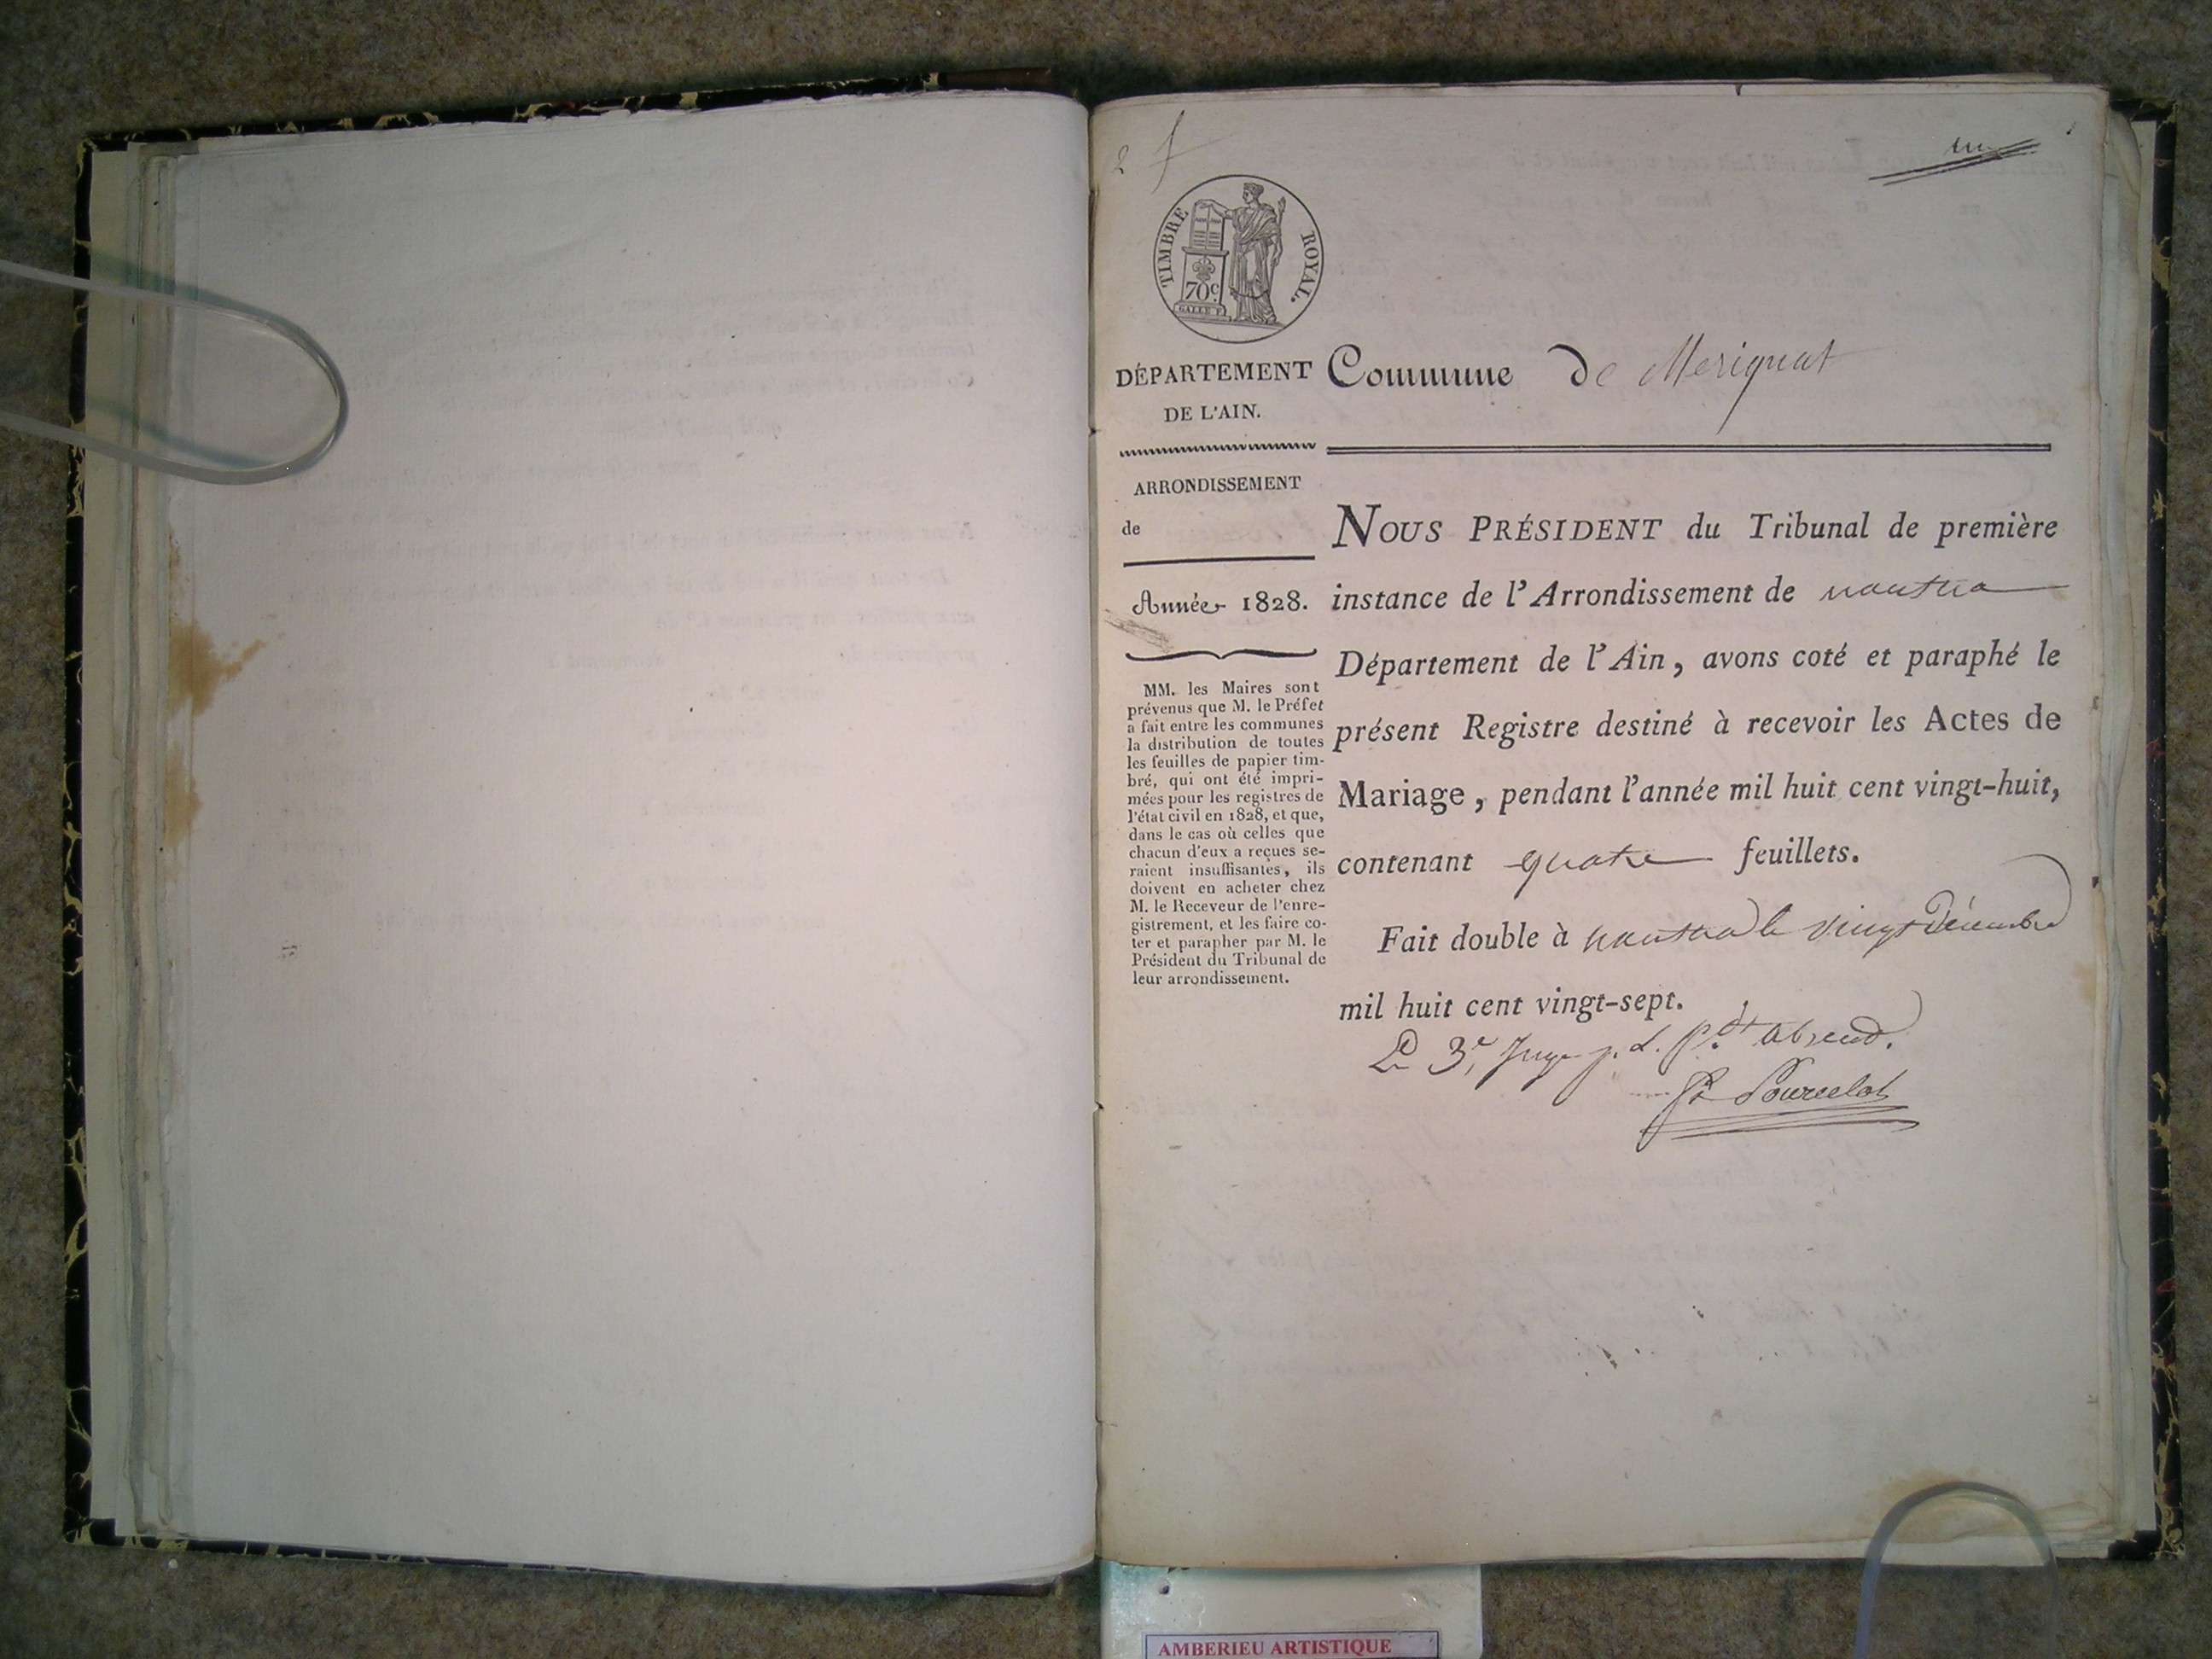 2
un
TIMBRE ROYAL.
70c.
GALLE F.
DÉPARTEMENT
DE L'AIN.
Commune de Merignat
ARRONDISSEMENT
de
Année 1828.
MM. les Maires sont
prévenus que M. le Préfet
a fait entre les communes
la distribution de toutes
les feuilles de papier tim-
bré, qui ont été impri-
mées pour les registres de
l'état civil en 1828, et que,
dans le cas où celles que
chacun d'eux a reçues se-
raient insuffisantes, ils
doivent en acheter chez
M. le Receveur de l'enre-
gistrement, et les faire co-
ter et parapher par M. le
Président du Tribunal de
leur arrondissement.
NOUS PRÉSIDENT du Tribunal de première
instance de l'Arrondissement de nantua
Département de l'Ain, avons coté et paraphé le
présent Registre destiné à recevoir les Actes de
Mariage, pendant l'année mil huit cent vingt-huit,
contenant quatre feuillets.
Fait double à nantua le vingt Décembre
mil huit cent vingt-sept.
Le 3e, Juge p. l. P.dt absend.
Pourcelot
AMBERIEU ARTISTIQUE